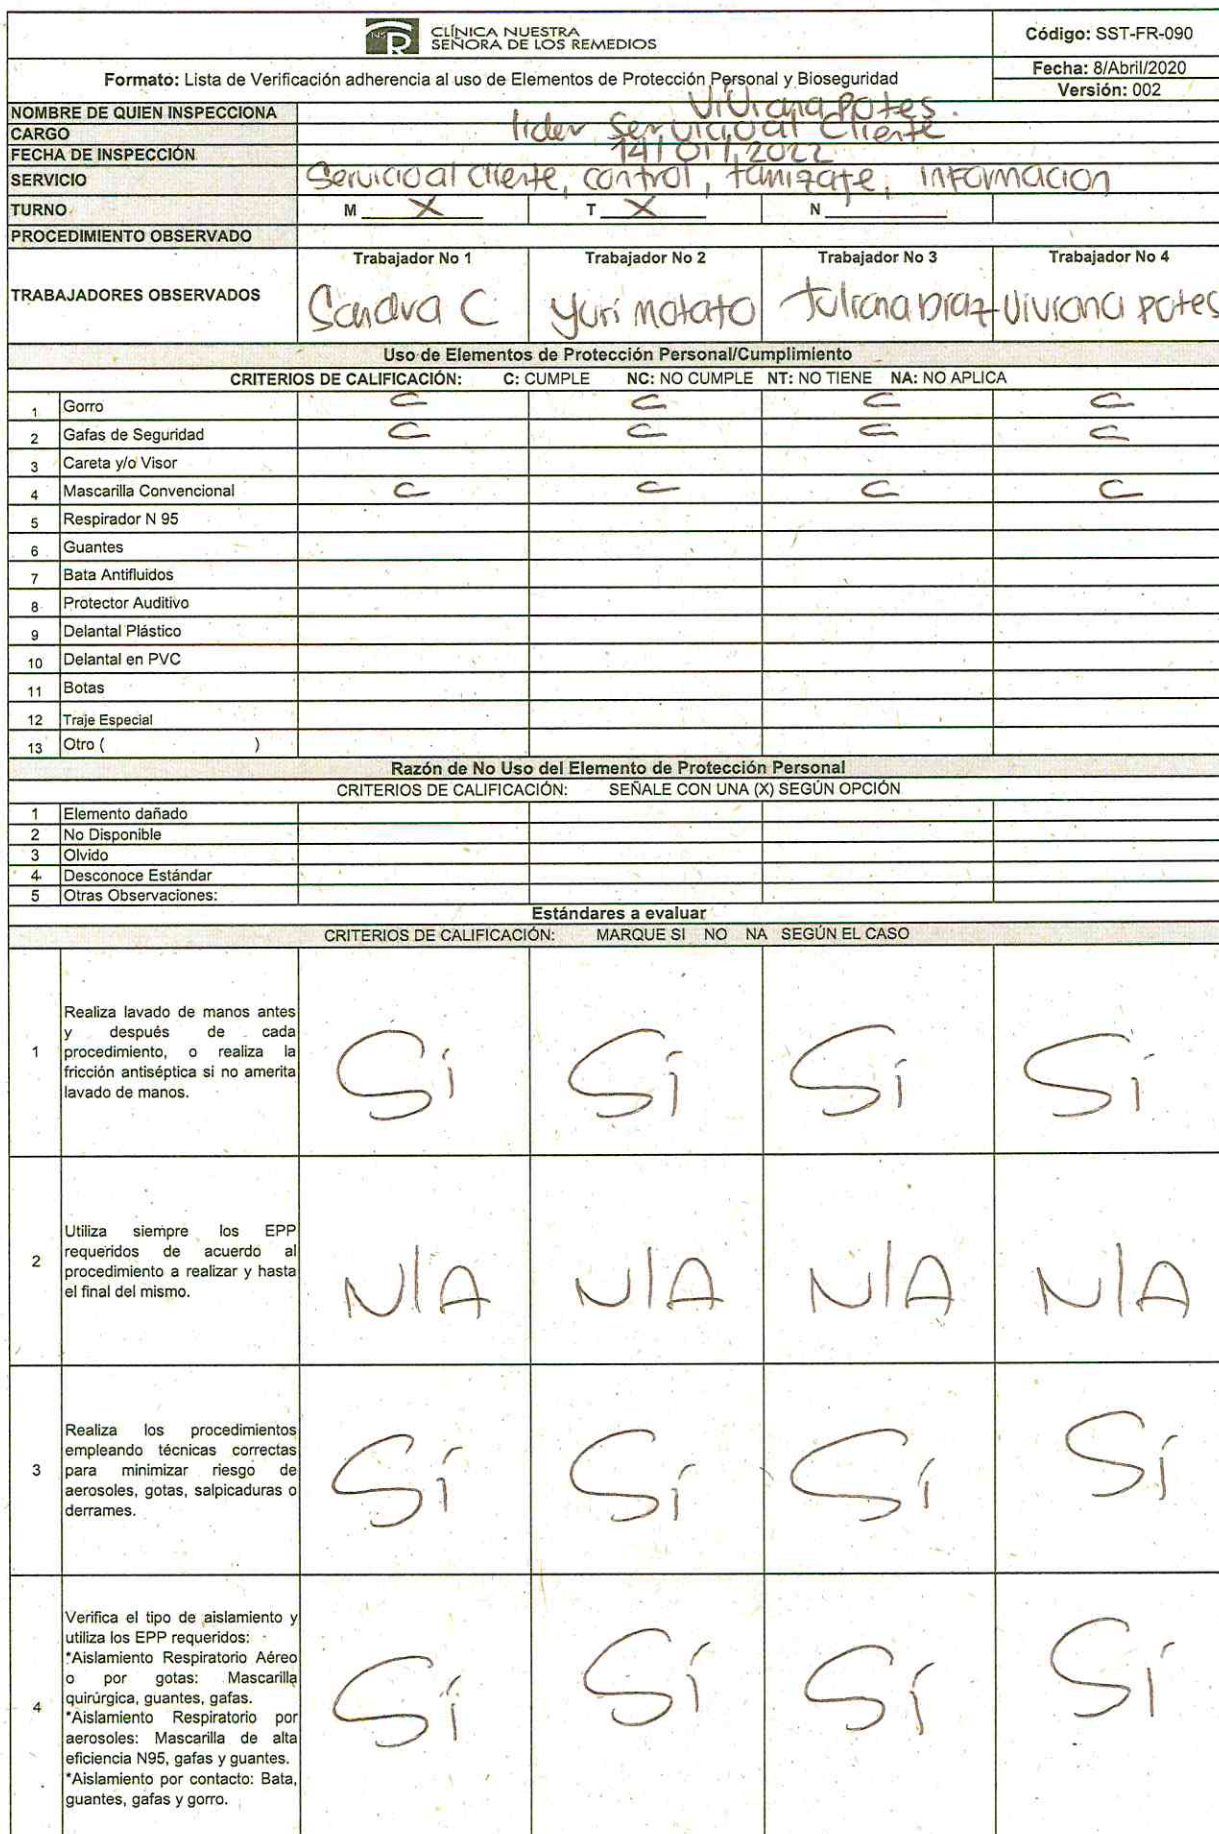 CLÍNICA NUESTRA
SEÑORA DE LOS REMEDIOS
Código: SST-FR-090
Formato: Lista de Verificación adherencia al uso de Elementos de Protección Personal y Bioseguridad
Fecha: 8/Abril/2020
Versión: 002
NOMBRE DE QUIEN INSPECCIONA Viviana Potes.
CARGO lider Servicio al Cliente
FECHA DE INSPECCIÓN 14/01/2022
SERVICIO Servicio al cliente, control, tamizaje, informacion
TURNO M X T X N
PROCEDIMIENTO OBSERVADO
Trabajador No 1 Trabajador No 2 Trabajador No 3 Trabajador No 4
TRABAJADORES OBSERVADOS Sandra C Yuri Juliana Diaz Viviana potes
Uso de Elementos de Protección Personal/Cumplimiento
CRITERIOS DE CALIFICACIÓN: C: CUMPLE NC: NO CUMPLE NT: NO TIENE NA: NO APLICA
1 Gorro C C C C
2 Gafas de Seguridad C C C C
3 Careta y/o Visor
4 Mascarilla Convencional C C C C
5 Respirador N 95
6 Guantes
7 Bata Antifluidos
8 Protector Auditivo
9 Delantal Plástico
10 Delantal en PVC
11 Botas
12 Traje Especial
13 Otro ( )
Razón de No Uso del Elemento de Protección Personal
CRITERIOS DE CALIFICACIÓN: SEÑALE CON UNA (X) SEGÚN OPCIÓN
1 Elemento dañado
2 No Disponible
3 Olvido
4 Desconoce Estándar
5 Otras Observaciones:
Estándares a evaluar
CRITERIOS DE CALIFICACIÓN: MARQUE SI NO NA SEGÚN EL CASO
Realiza lavado de manos antes
y después de cada
1 procedimiento, o realiza la
fricción antiséptica si no amerita
lavado de manos.
Sí Sí Sí Sí
Utiliza siempre los EPP
requeridos de acuerdo al
2 procedimiento a realizar y hasta
el final del mismo.
N/A N/A N/A N/A
Realiza los procedimientos
empleando técnicas correctas
3 para minimizar riesgo de
aerosoles, gotas, salpicaduras o
derrames.
Sí Sí Sí Sí
Verifica el tipo de aislamiento y
utiliza los EPP requeridos:
*Aislamiento Respiratorio Aéreo
o por gotas: Mascarilla
quirúrgica, guantes, gafas.
4 *Aislamiento Respiratorio por
aerosoles: Mascarilla de alta
eficiencia N95, gafas y guantes.
*Aislamiento por contacto: Bata,
guantes, gafas y gorro.
Sí Sí Sí Sí